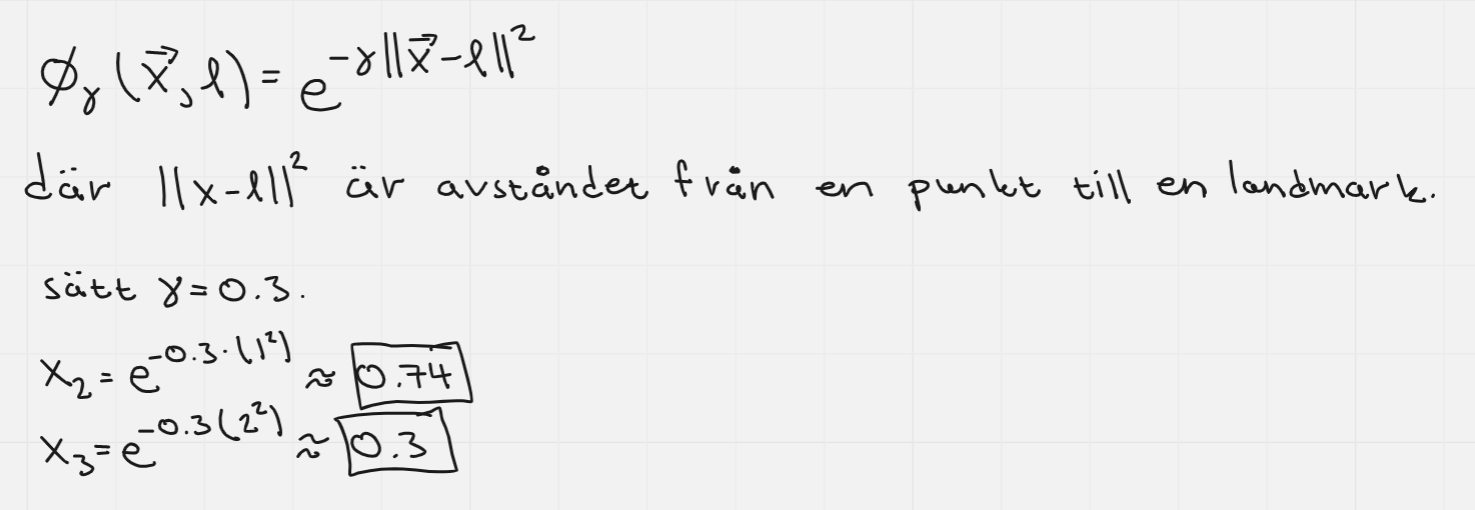 ϕᵧ(x⃗, ℓ) = e^{-γ||x⃗-ℓ||²}
där ||x-ℓ||² är avståndet från en punkt till en landmark.
sätt γ=0.3.
x₂ = e^{-0.3·(1²)} ≈ 0.74
x₃ = e^{-0.3(2²)} ≈ 0.3